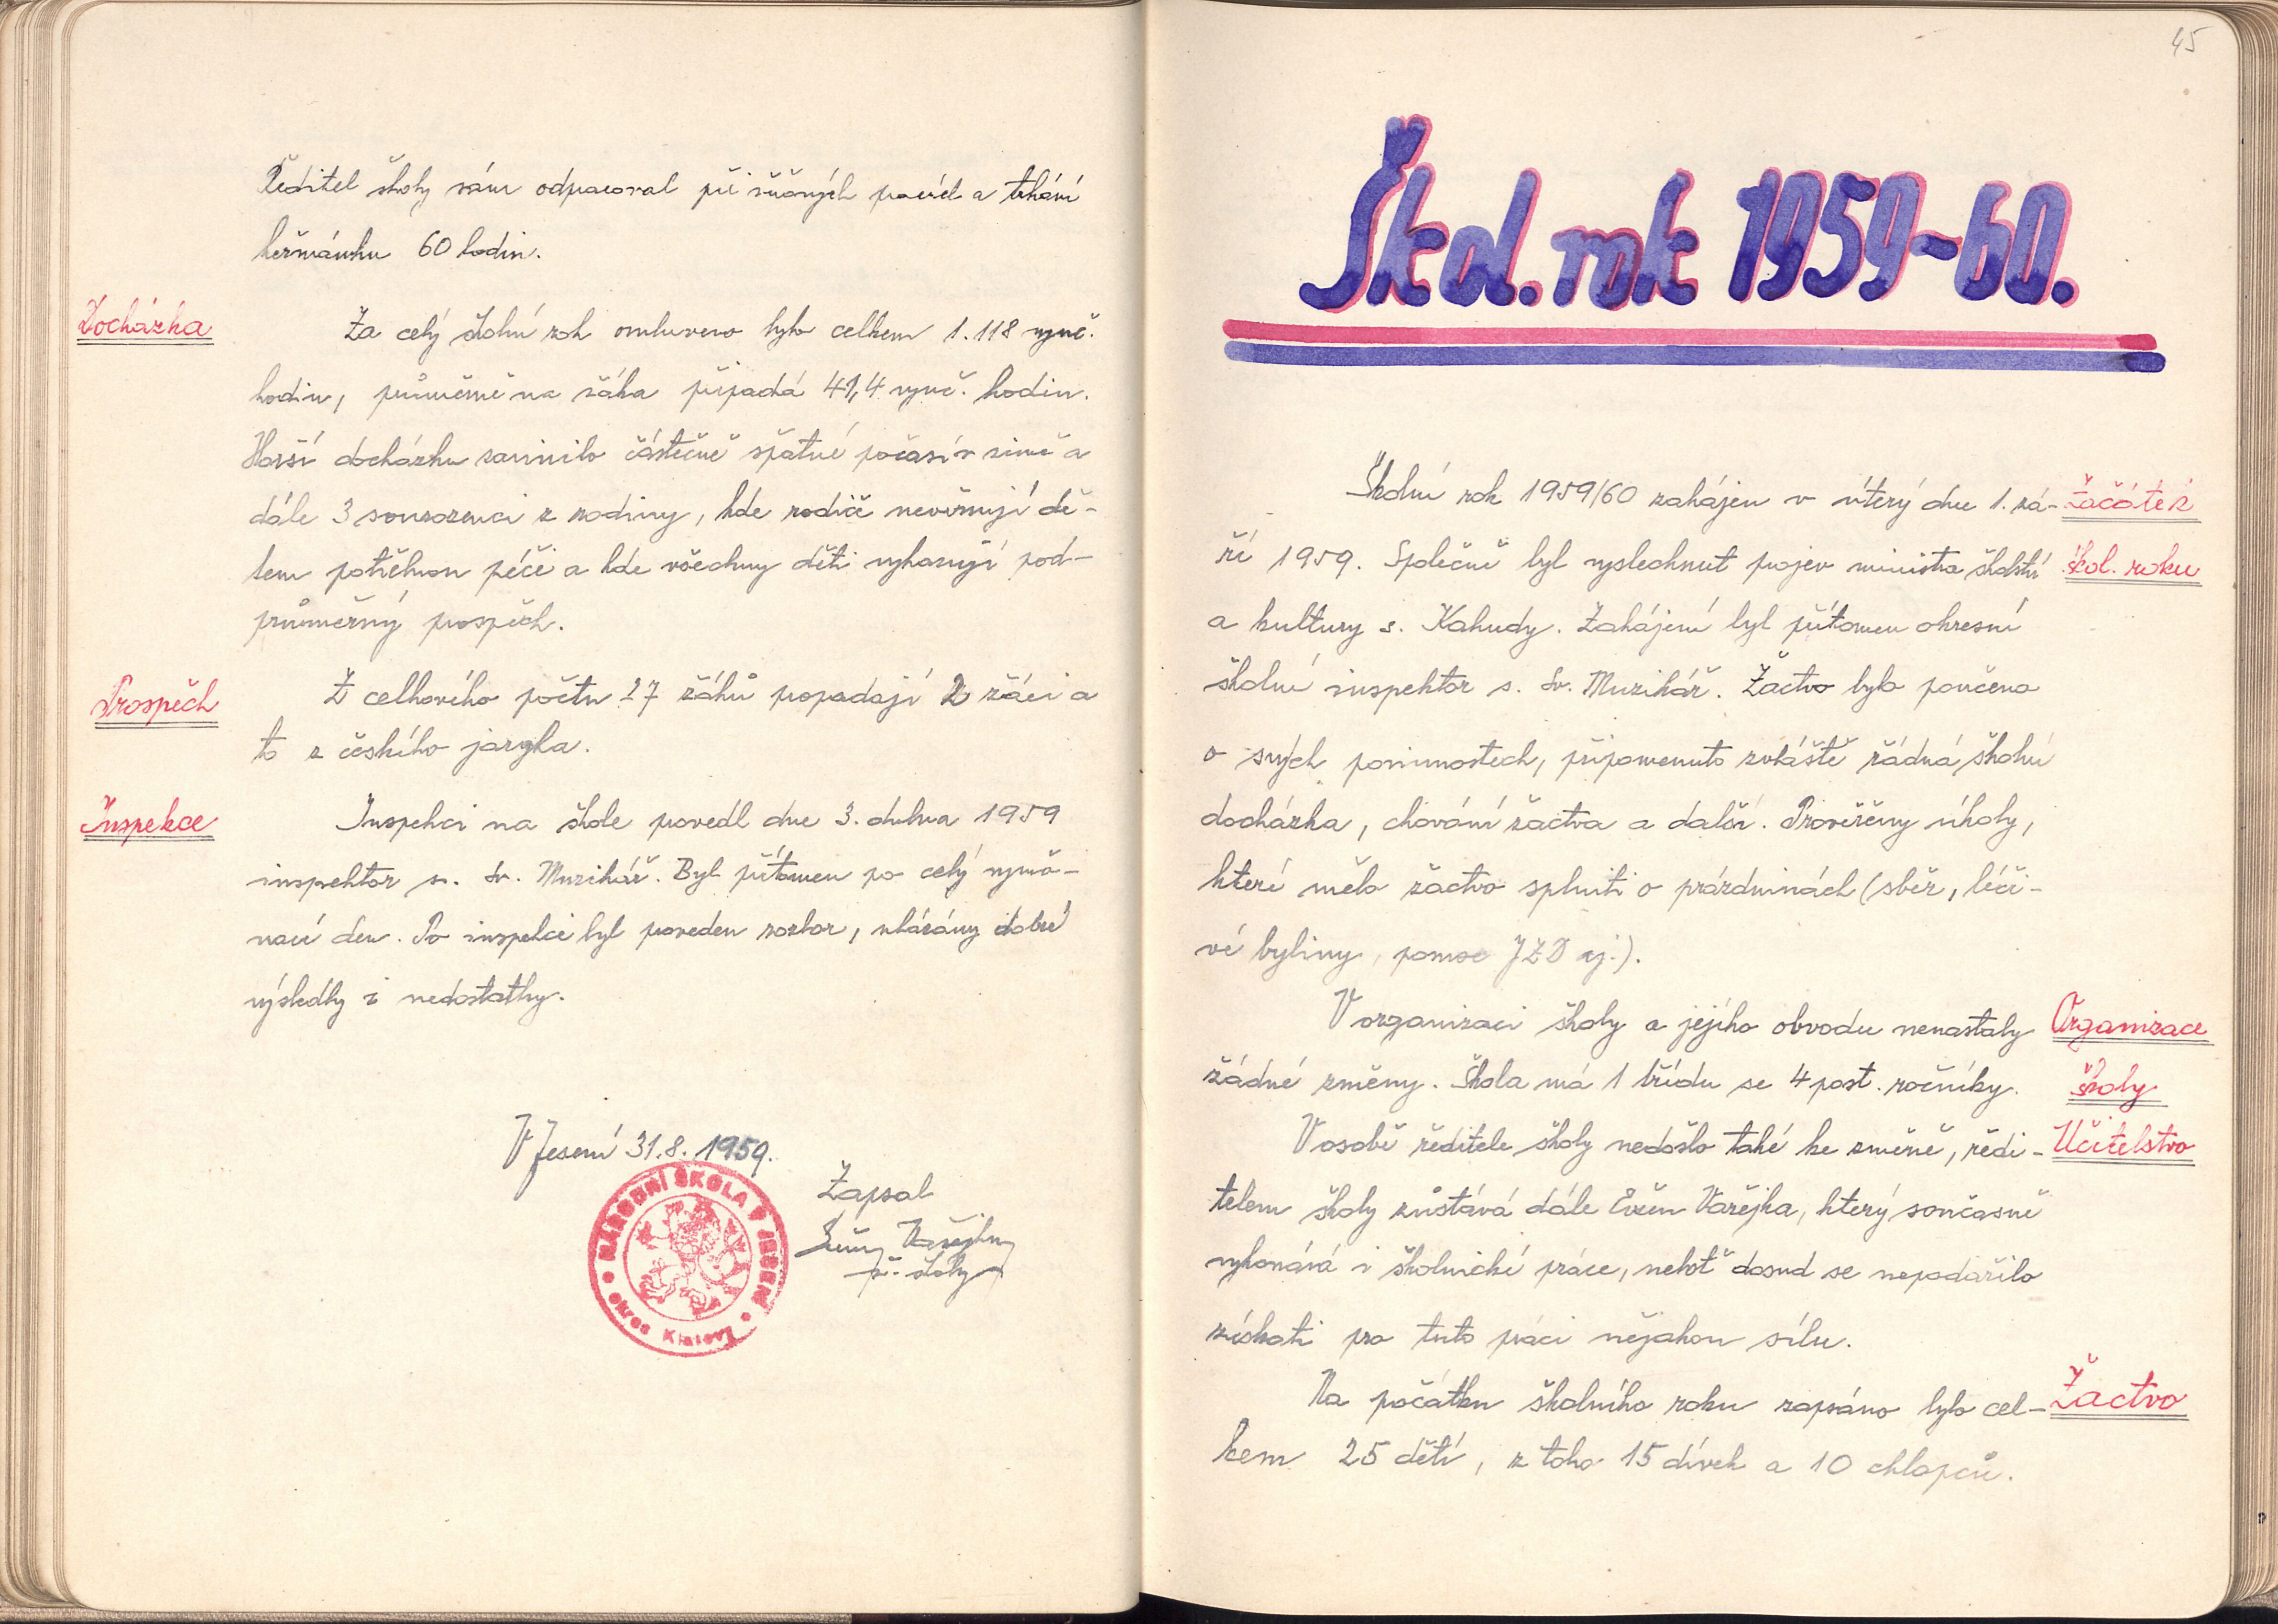 Ředitel školy sám odpracoval při různých pracích a trhání
heřmánku 60 hodin.
Docházka
Za celý školní rok omluveno bylo celkem 1.118 vyuč.
hodin, průměrně na žáka připadá 41,4 vyuč. hodin.
Horší docházku zavinilo částečně špatné počasí v zimě a
dále 3 sourozenci z rodiny, kde rodiče nevěnují dě-
tem potřebnou péči a kde všechny děti vykazují pod-
průměrný prospěch.
Prospěch
Z celkového počtu 27 žáků propadají 2 žáci a
to z českého jazyka.
Inspekce
Inspekci na škole provedl dne 3. dubna 1959
inspektor s. Sv. Muzikář. Byl přítomen po celý vyučo-
vací den. Po inspekci byl proveden rozbor, ukázány dobré
výsledky i nedostatky.
V Jesení 31.8.1959.
Zapsal
Evžen Vařejka
ř. školy
NÁRODNÍ ŠKOLA V JESENÍ
okres Klatovy
45
Škol. rok 1959-60.
Školní rok 1959/60 zahájen v úterý dne 1. zá-
Začátek
ří 1959. Společně byl vyslechnut projev ministra školství
škol. roku
a kultury s. Kahudy. Zahájení byl přítomen okresní
školní inspektor s. Sv. Muzikář. Žactvo bylo poučeno
o svých povinnostech, připomenuto zvláště řádná školní
docházka, chování žactva a další. Prověřeny úkoly,
které mělo žactvo splniti o prázdninách (sběr, léči-
vé byliny, pomoc JZD aj.).
V organizaci školy a jejího obvodu nenastaly
Organizace
žádné změny. Škola má 1 třídu se 4 post. ročníky.
školy
V osobě ředitele školy nedošlo také ke změně, ředi-
Učitelstvo
telem školy zůstává dále Evžen Vařejka, který současně
vykonává i školnické práce, neboť dosud se nepodařilo
získati pro tuto práci nějakou sílu.
Na počátku školního roku zapsáno bylo cel-
Žactvo
kem 25 dětí, z toho 15 dívek a 10 chlapců.